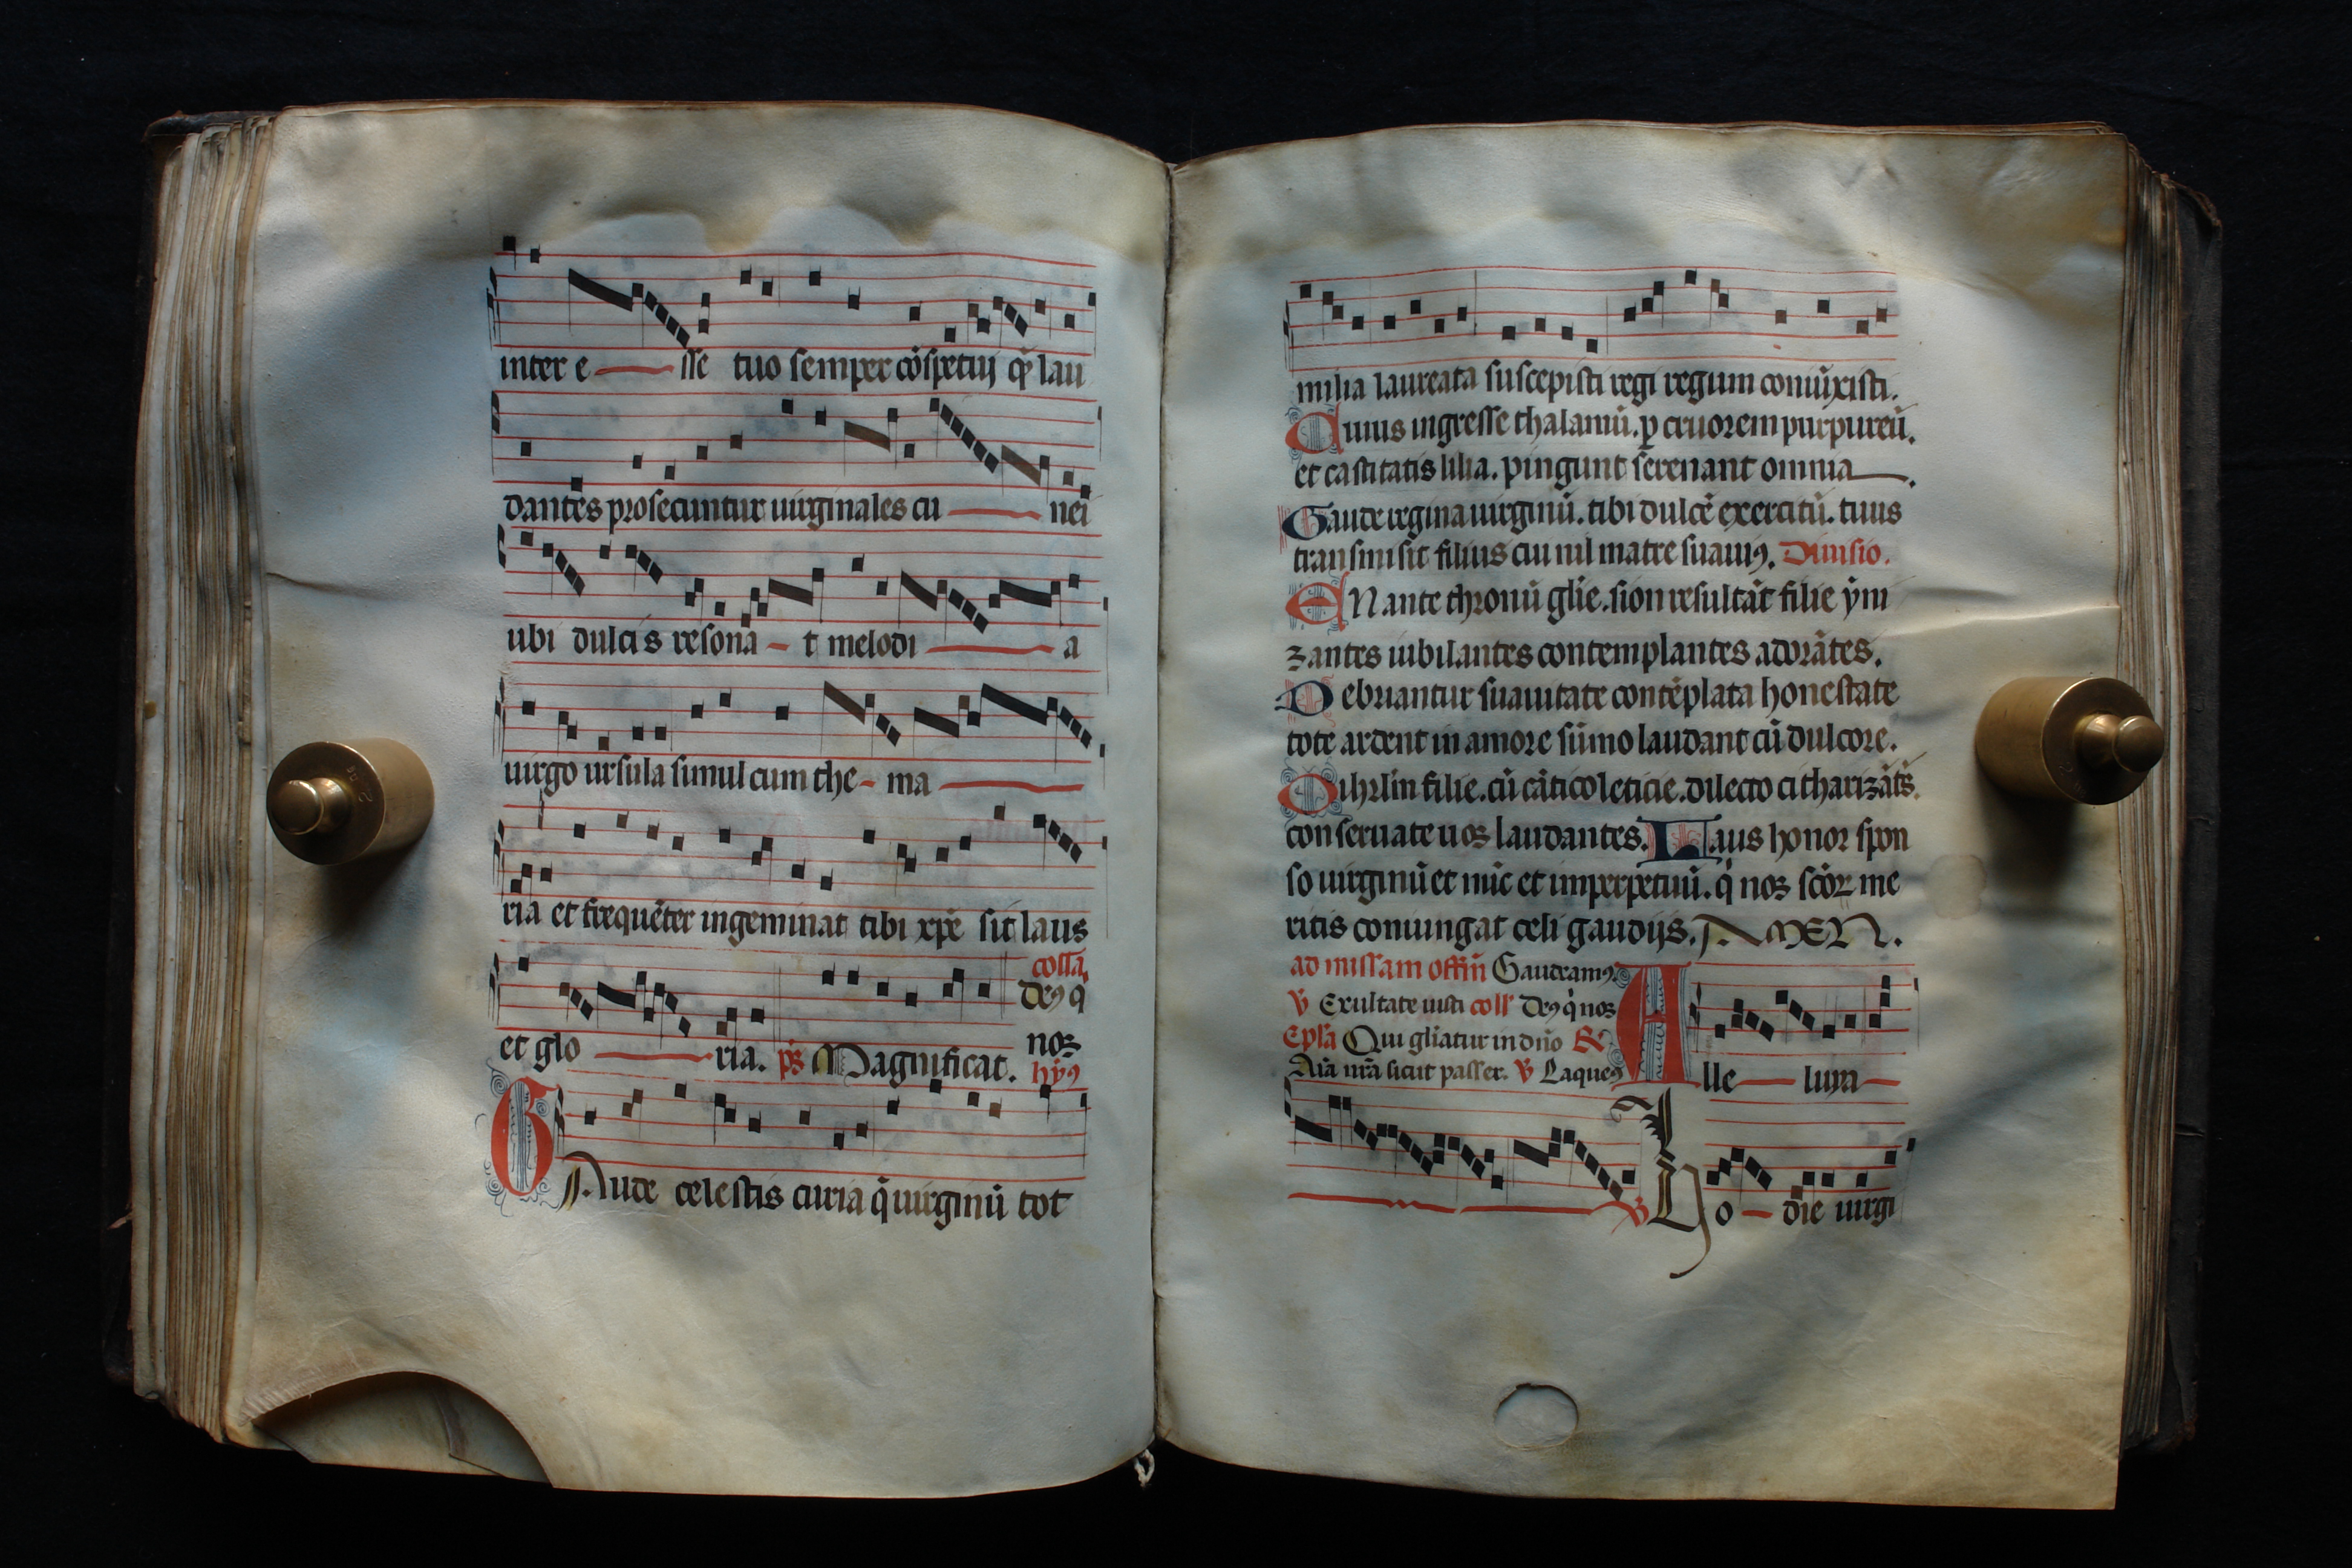 inter e sse tuo semper cōspectuj q̄ lau
dantes prosecuntur uirginales cu nei
ubi dulcis resona t melodi a
uirgo ursula simul cum the ma
ria et frequēter ingeminat tibi xp̄e sit laus
collā
deꝯ q̇
et glo ria. ps̄ Magnificat.
noꝫ
hy̅ꝯ
GAude celestis curia q̇ uirginū tot
milia laureata suscepisti regi regum coniūxisti.
Cuius ingresse thalamū. ꝑ cruorem purpureū.
et castitatis lilia. pingunt serenant omnia.
Gaude regina uirginū. tibi dulcē exercitū. tuus
transmisit filius cui nil matre suauiꝯ. Diuisio.
ENante thronū gl̄ie. sion resultāt filie ym
zantes iubilantes contemplantes adorātes.
Debriantur suauitate contēplata honestate
tote ardent in amore sūmo laudant cū dulcore.
Oihrl̄m filie. cū cātico leticie. dilecto citharizātes.
conseruate uoꝫ laudantes. Laus honor spon
so uirginū et nūc et imperpetuū. q̇ noꝫ scōꝝ me
ritis coniungat celi gaudijs. AMEN.
ad missam offim̄ Gaudeamꝯ.
℣ Exultate iusti coll̄ Deꝯ q̇ noꝫ
Ep̄la Qui gl̄iatur in dn̄o ℟
Aīa nr̄a sicut passer. ℣ Laqueꝯ
A lle luya
℣ Ho die uirgi